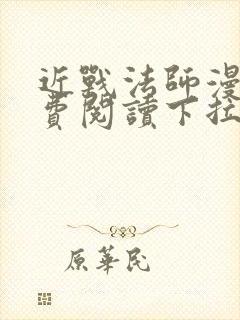 近戰法師漫
費閱讀下拉
原華民